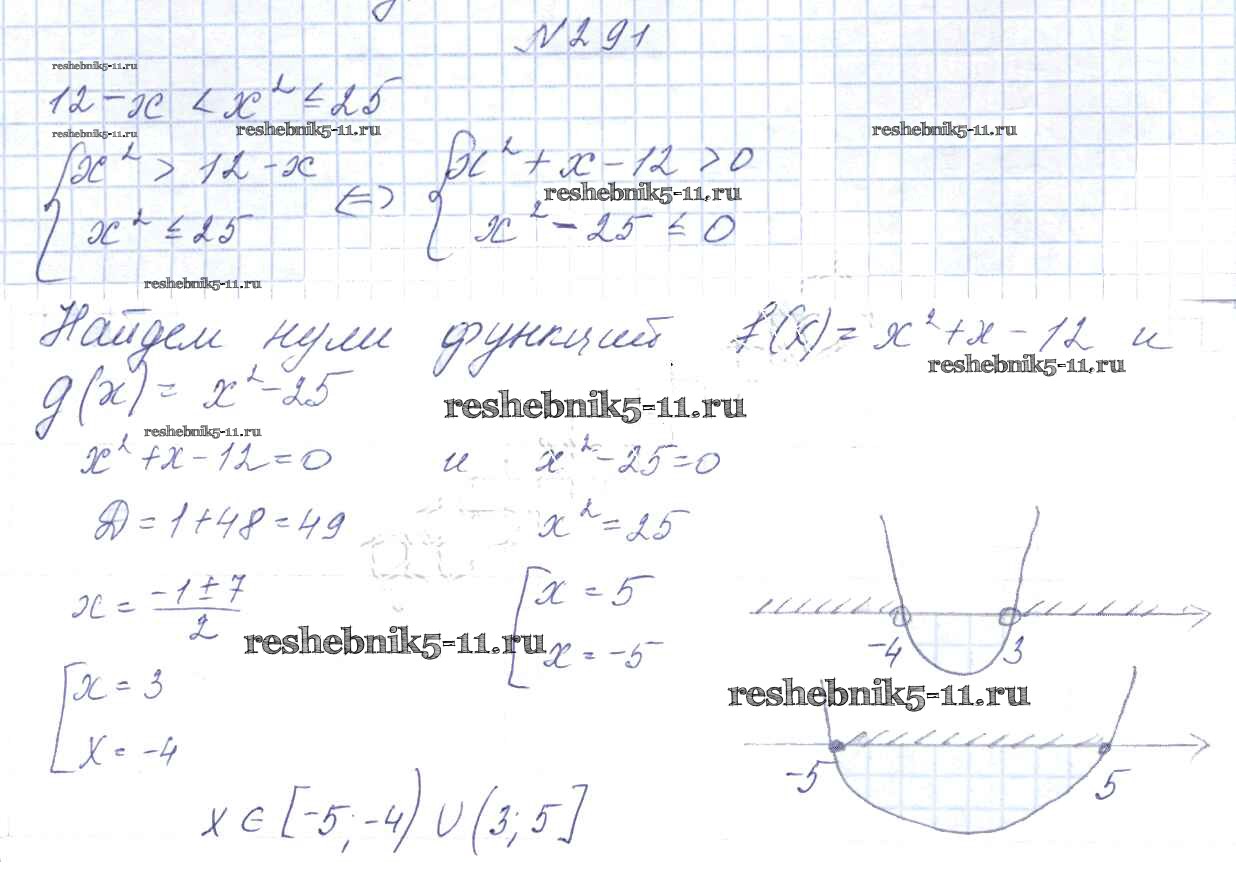 N291
reshebnik5-11.ru
12 - x < x² ≤ 25
reshebnik5-11.ru reshebnik5-11.ru reshebnik5-11.ru
{ x² > 12 - x <=> { x² + x - 12 > 0
reshebnik5-11.ru
x² ≤ 25 x² - 25 ≤ 0
reshebnik5-11.ru
Найдем нули функций f(x) = x² + x - 12 и
reshebnik5-11.ru
g(x) = x² - 25
reshebnik5-11.ru
reshebnik5-11.ru
x² + x - 12 = 0 и x² - 25 = 0
D = 1 + 48 = 49 x² = 25
x = (-1 ± 7)/2 [ x = 5
reshebnik5-11.ru
x = -5
-4 3
[ x = 3
reshebnik5-11.ru
x = -4
-5 5
x ∈ [-5; -4) ∪ (3; 5]